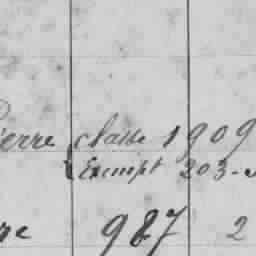 Pierre classe 1909
Exempt 203-
re 987 2